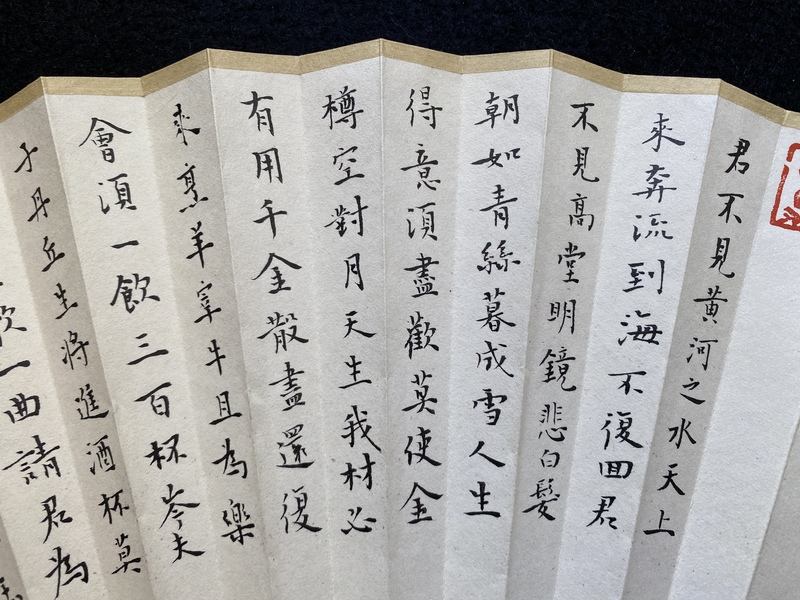 君不見黃河之水天上
來奔流到海不復回君
不見高堂明鏡悲白髮
朝如青絲暮成雪人生
得意須盡歡莫使金
樽空對月天生我材必
有用千金散盡還復
來烹羊宰牛且為樂
會須一飲三百杯岑夫
子丹丘生將進酒杯莫
歌一曲請君為